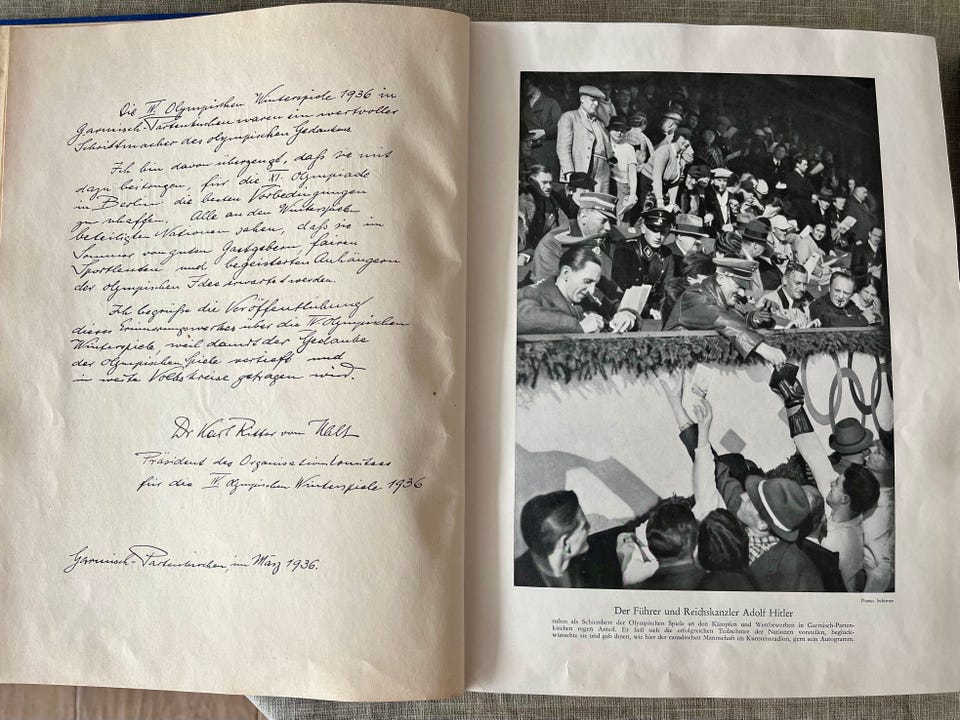 Die IV. Olympischen Winterspiele 1936 in
Garmisch-Partenkirchen waren ein wertvoller
Schrittmacher des olympischen Gedankens
Ich bin davon überzeugt, daß sie mit
dazu beitragen, für die XI. Olympiade
in Berlin die besten Vorbedingungen
zu schaffen. Alle an den Winterspielen
beteiligten Nationen sahen, daß sie im
Sommer von guten Gastgebern, fairen
Sportsleuten und begeisterten Anhängern
der olympischen Idee erwartet werden.
Ich begrüße die Veröffentlichung
dieses Erinnerungswerkes über die IV. Olympischen
Winterspiele, weil damit der Gedanke
der Olympischen Spiele vertieft und
in weite Volkskreise getragen wird.
Dr Karl Ritter von Halt
Präsident des Organisationskomitees
für die IV. Olympischen Winterspiele 1936
Garmisch-Partenkirchen, im März 1936.
Photo: Schirner
Der Führer und Reichskanzler Adolf Hitler
nahm als Schirmherr der Olympischen Spiele an den Kämpfen und Wettbewerben in Garmisch-Parten-
kirchen regen Anteil. Er ließ sich die erfolgreichen Teilnehmer der Nationen vorstellen, beglück-
wünschte sie und gab ihnen, wie hier der canadischen Mannschaft im Kunsteisstadion, gern sein Autogramm.